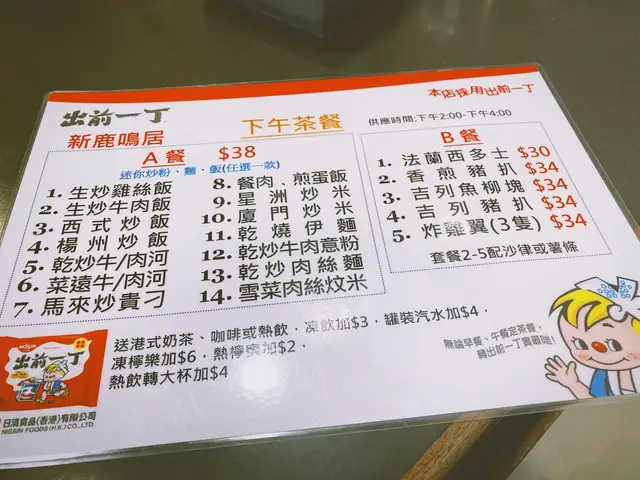 本店採用出前一丁
出前一丁
新鹿鳴居
下午茶餐
供應時間:下午2:00-下午4:00
A餐 $38
迷你炒粉、麵、飯(任選一款)
1. 生炒雞絲飯
2. 生炒牛肉飯
3. 西式炒飯
4. 楊州炒飯
5. 乾炒牛/肉河
6. 菜遠牛/肉河
7. 馬來炒貴刁
8. 餐肉、煎蛋飯
9. 星洲炒米
10. 廈門炒米
11. 乾燒伊麵
12. 乾炒牛肉意粉
13. 乾炒肉絲麵
14. 雪菜肉絲炆米
B餐
1. 法蘭西多士 $30
2. 香煎豬扒 $34
3. 吉列魚柳塊 $34
4. 吉列豬扒 $34
5. 炸雞翼(3隻) $34
套餐2-5配沙律或薯條
送港式奶茶、咖啡或熱飲,凍飲加$3,罐裝汽水加$4,
凍檸樂加$6,熱檸蜜加$2,
熱飲轉大杯加$4
無論早餐、午餐定茶餐,
轉出前一丁實喜啦!
NISSIN
出前一丁
日清食品(香港)有限公司
NISSIN FOODS (H.K.) CO., LTD.